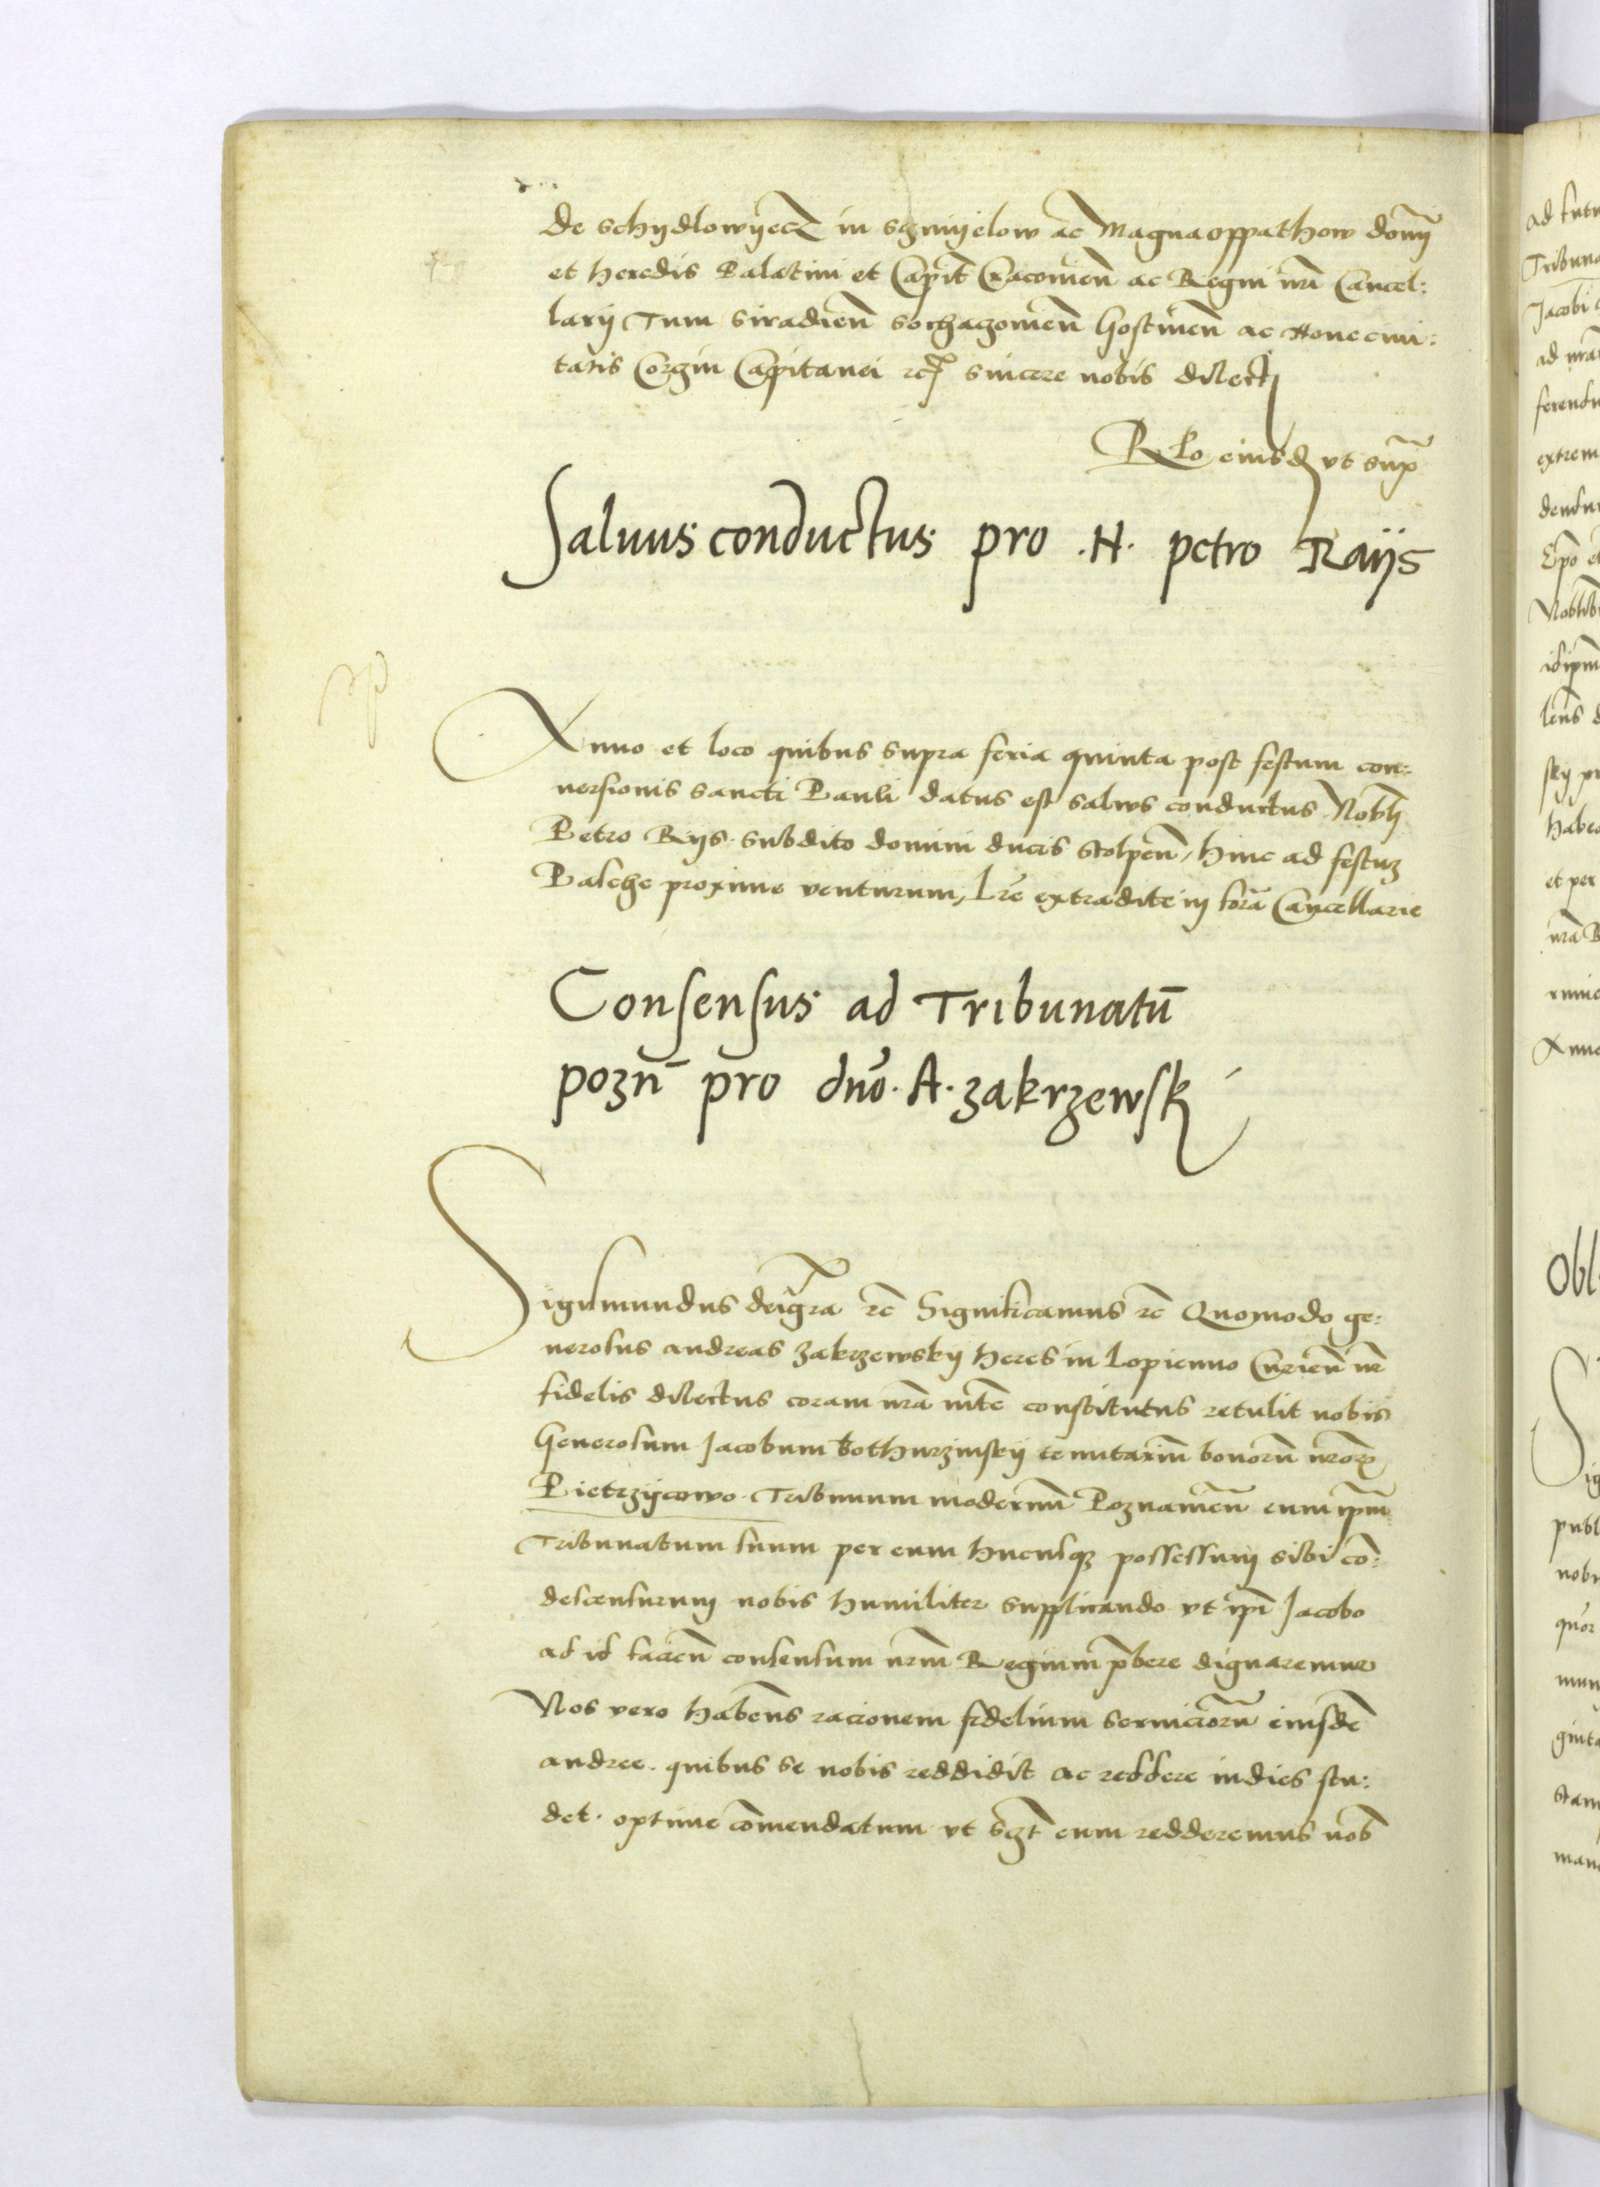 de schydlowyecz in szmyelow ac Magnaoppathow domī
et heredis Palatini et Capit Cracovien ac Regni nri Cancel:
larij Tum siradien sochazovien Gostinen ac Nove civi:
tatis Corzin Capitanei rc sincere nobis dilecti
R Lo eiusd ut supra
Salvus conductus pro .N. petro Raijs
Anno et loco quibus supra feria quinta post festum con:
versionis sancti Pauli datus est salvus conductus Nobli
Petro Rijs subdito domini ducis stolpen, hinc ad festuz
Pasche proxime venturum, Lre extradite in forā Cancellarie
Consensus ad Tribunatū
pozn̄ pro dno. A. zakrzewskj
Sigismundus dei gra rc Significamus rc Quomodo ge:
nerosus andreas zakrzewskij heres in Lopienno Curien nr
fidelis dilectus coram nra mte constitutus retulit nobis
Generosum Jacobum bothurzinskij tenutariū bonorū nrorz
Pietrzijcowo Tribunum modernū Poznanien eum ipm
Tribunatum suum per eum hucusqz possessum sibi cō:
descensurum nobis humiliter supplicando ut ipi Jacobo
ad id facien consensum nrm Regium pbere dignaremur
Nos vero habens racionem fidelium serviciorū eiusdē
andree. quibus se nobis reddidit ac reddere indies stu:
det. optime cōmendatum ut eum redderemus nob